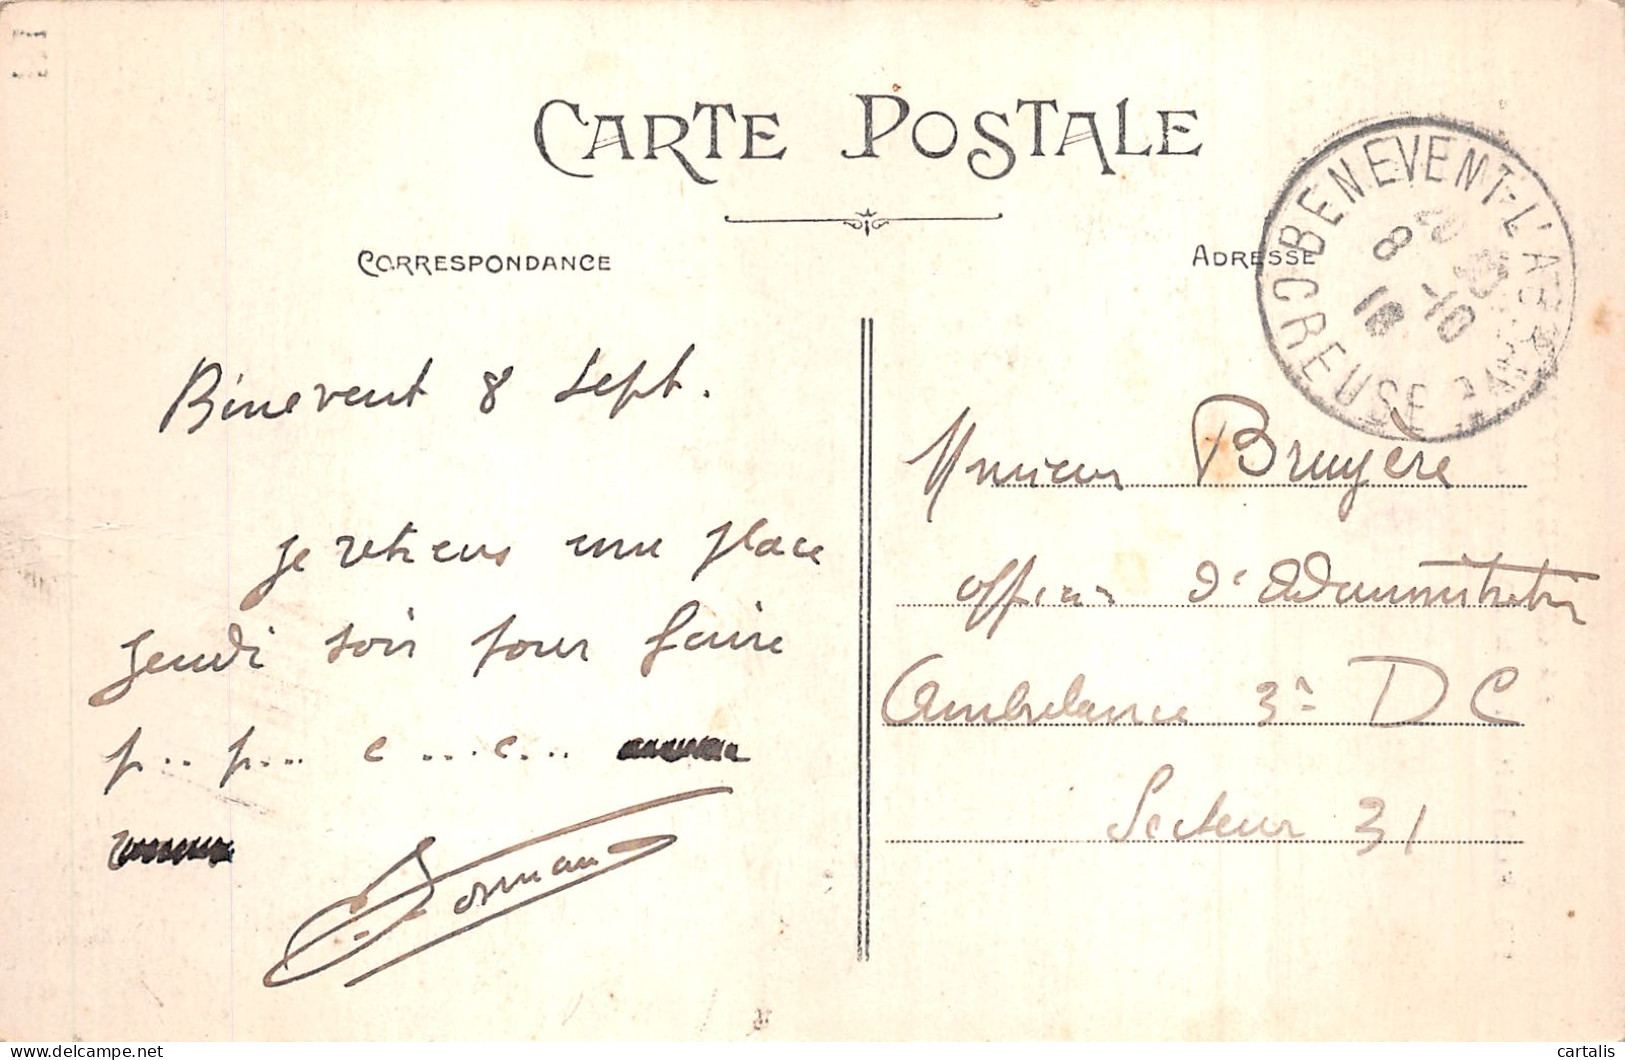 CARTE POSTALE
CORRESPONDANCE
ADRESSE
BENEVENT-L'ABB
CREUSE
8 -10
18
Bénévent 8 Sept.
je retiens une place
jeudi soir pour faire
p... p... c ... c...
Dormand
Monsieur Bruyère
officier d'Administration
Ambulance 3e DC
Secteur 31
cartalis